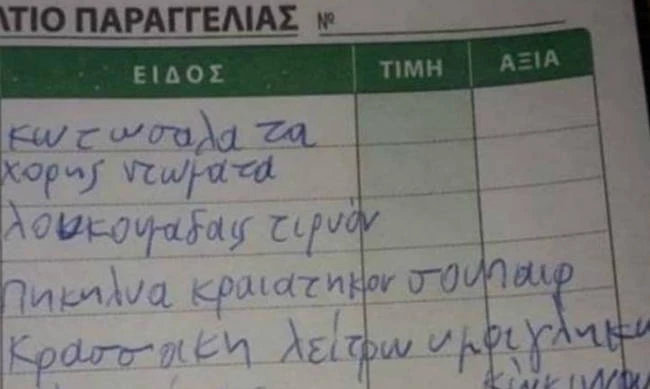 ΛΤΙΟ ΠΑΡΑΓΓΕΛΙΑΣ №
ΕΙΔΟΣ ΤΙΜΗ ΑΞΙΑ
κωτωσαλατα
χορης ντωματα
λουκουμαδαις τιρυόν
πηκηλυα κραιατηκον σουπαιρ
κρασσακη λείτρω ημοιγληκω
κώκκινου